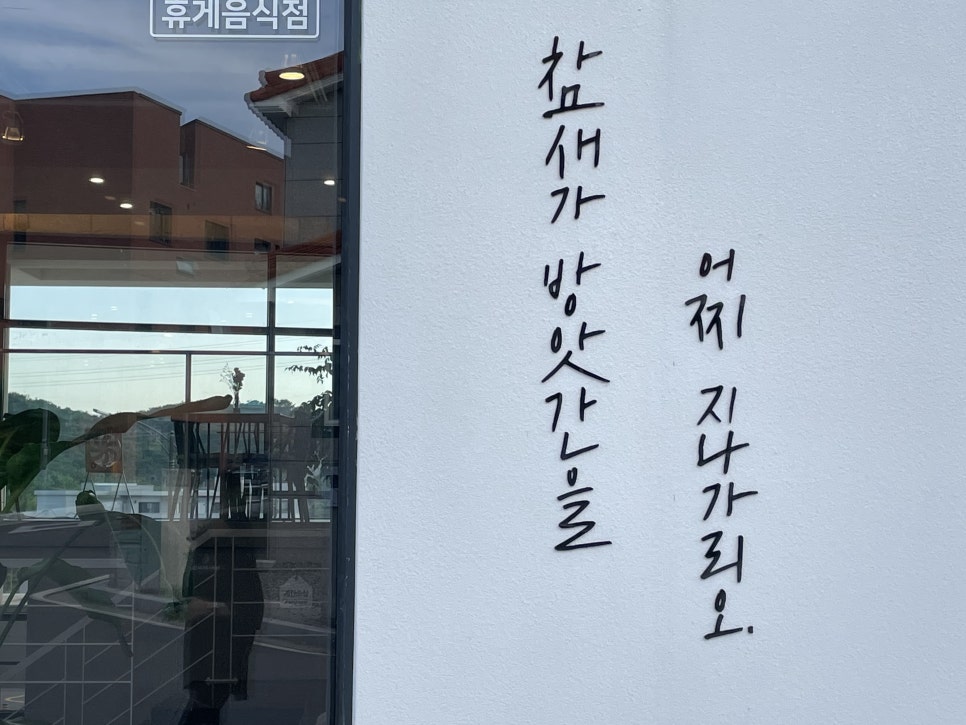 휴게음식점
참새가 방앗간을
어찌 지나가리오.